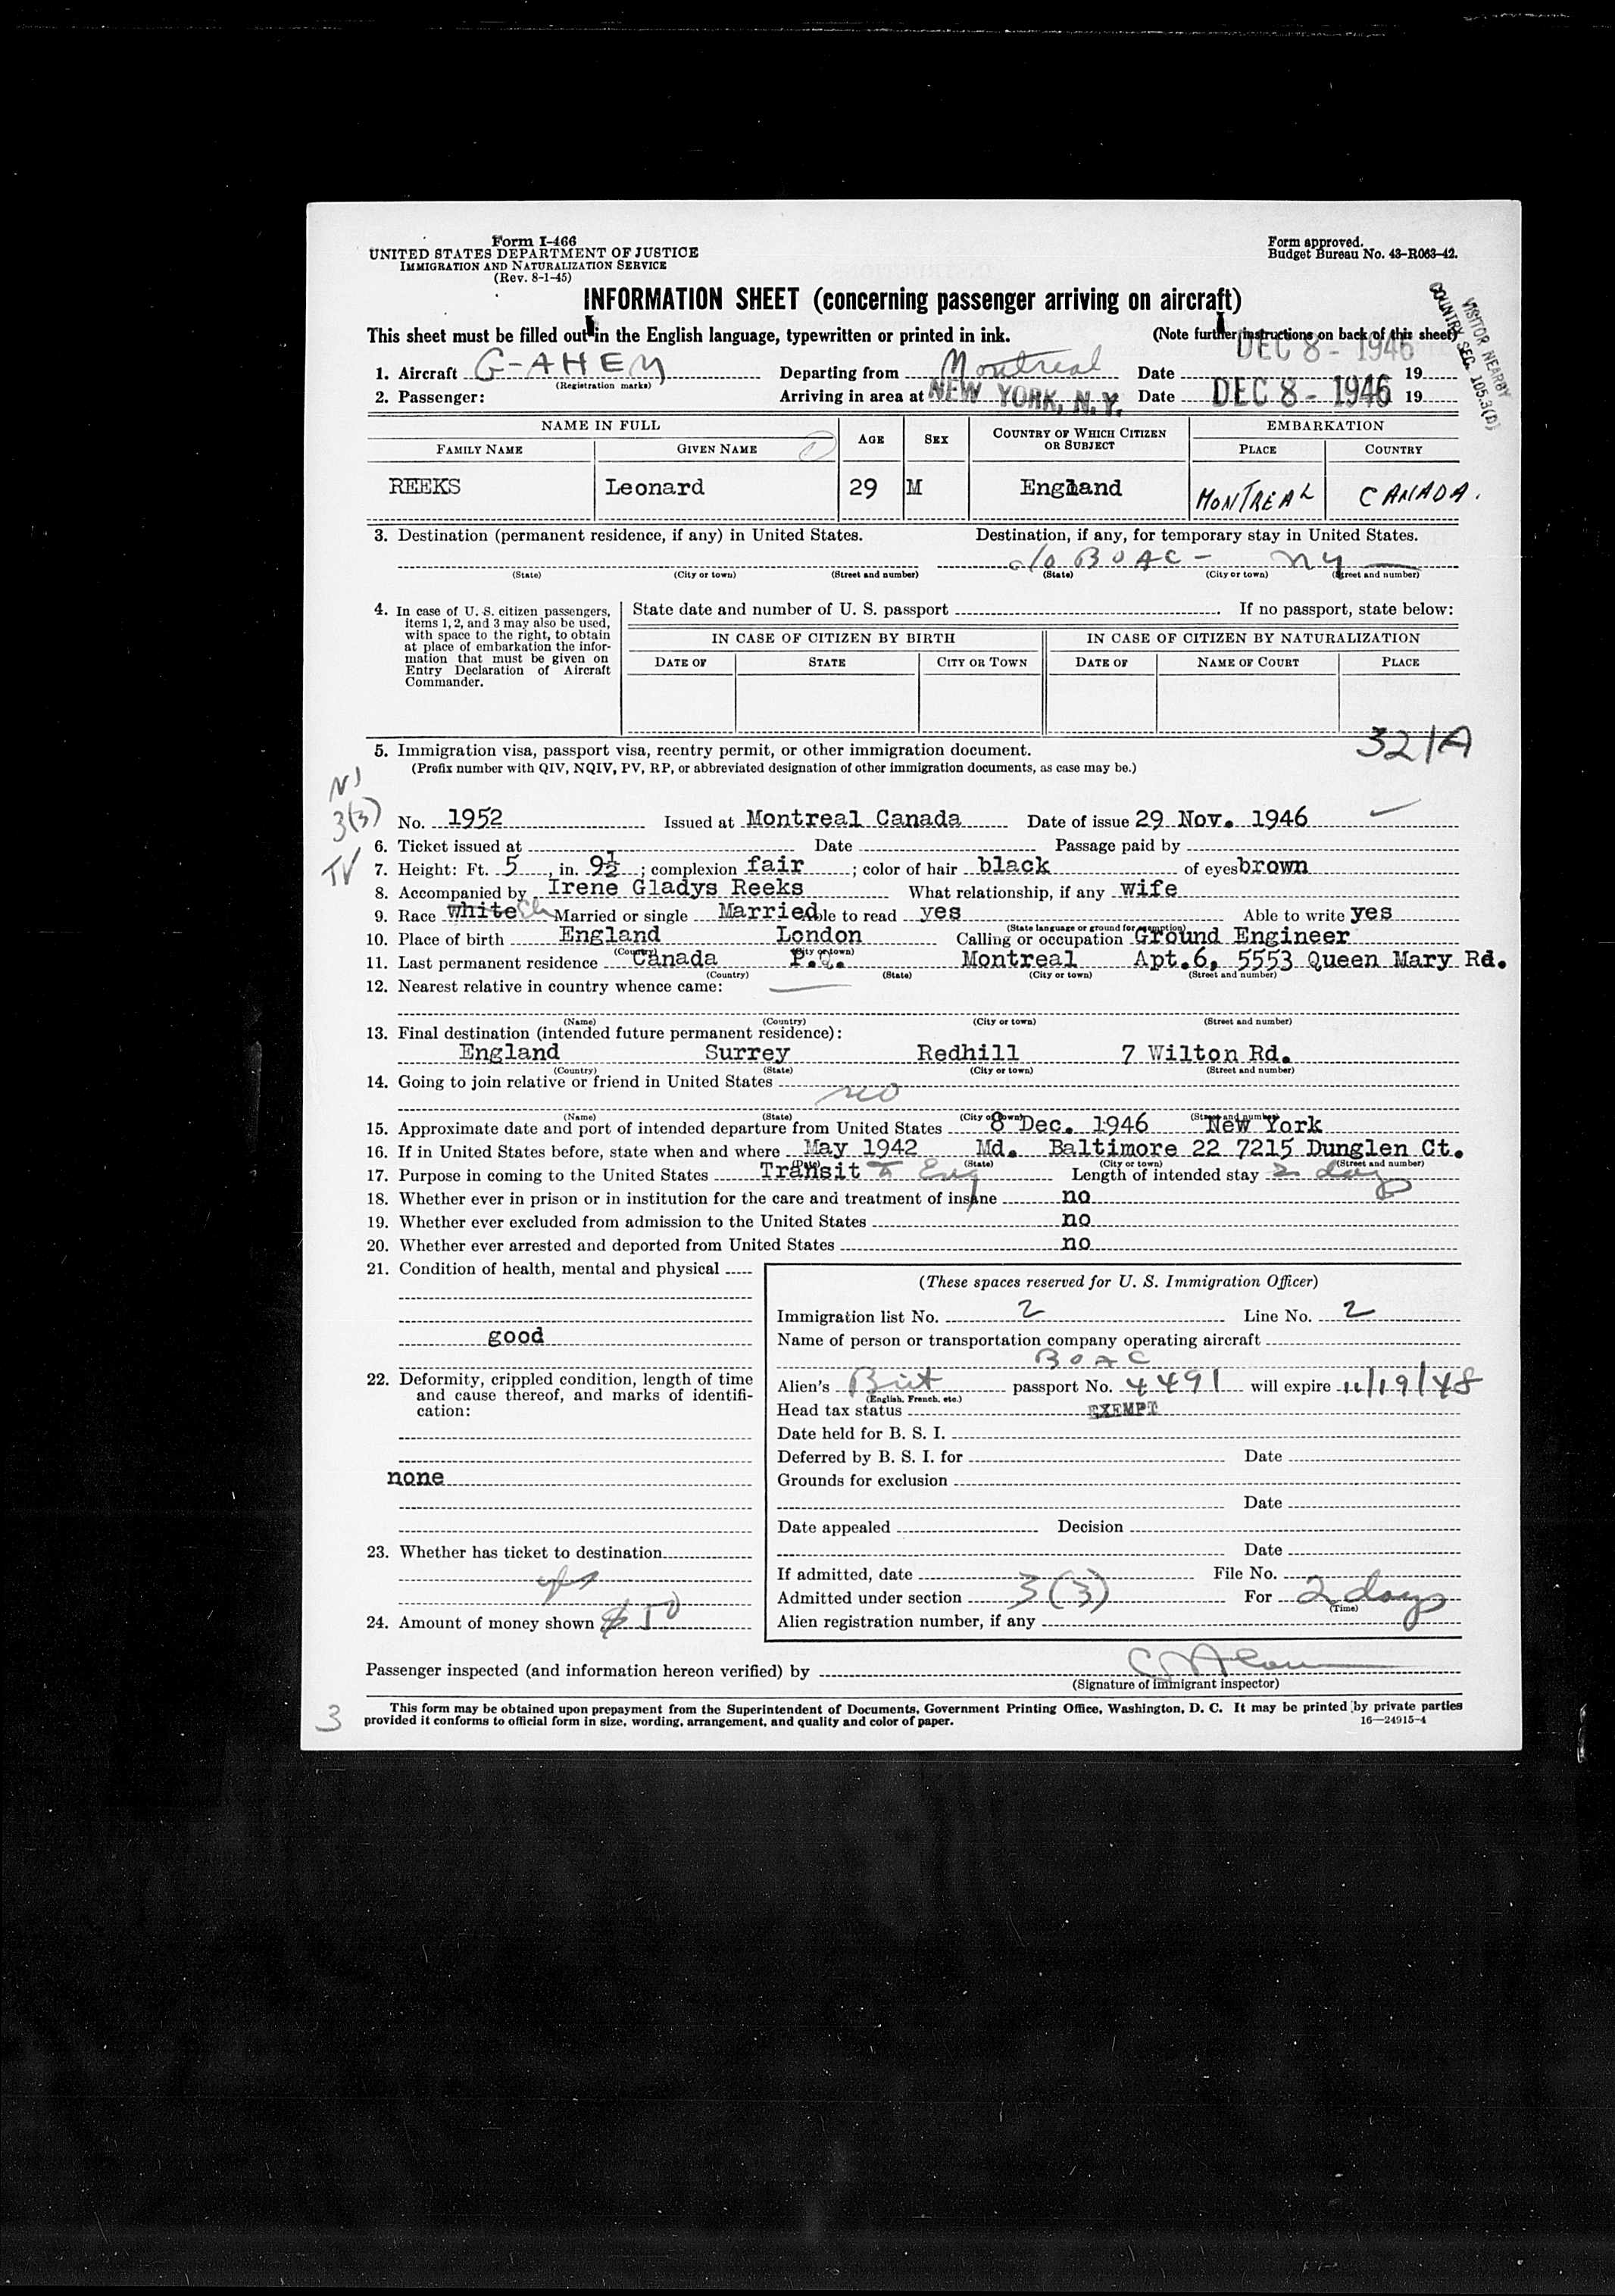 Form I-466
UNITED STATES DEPARTMENT OF JUSTICE
IMMIGRATION AND NATURALIZATION SERVICE
(Rev. 8-1-45)
Form approved.
Budget Bureau No. 43-R063-42.
INFORMATION SHEET (concerning passenger arriving on aircraft)
VISITOR NEARBY
COUNTRY SEC. 105.3(D)
This sheet must be filled out in the English language, typewritten or printed in ink. (Note further instructions on back of this sheet)
DEC 8 - 1946
1. Aircraft G-AHEM Departing from Montreal Date 19
(Registration marks)
2. Passenger: Arriving in area at NEW YORK, N.Y. Date DEC 8 - 1946 19
NAME IN FULL AGE SEX COUNTRY OF WHICH CITIZEN OR SUBJECT EMBARKATION
FAMILY NAME GIVEN NAME PLACE COUNTRY
REEKS Leonard 29 M England MONTREAL CANADA.
3. Destination (permanent residence, if any) in United States. Destination, if any, for temporary stay in United States.
c/o BOAC - NY
(State) (City or town) (Street and number) (State) (City or town) (Street and number)
4. In case of U. S. citizen passengers, items 1, 2, and 3 may also be used, with space to the right, to obtain at place of embarkation the information that must be given on Entry Declaration of Aircraft Commander.
State date and number of U. S. passport If no passport, state below:
IN CASE OF CITIZEN BY BIRTH IN CASE OF CITIZEN BY NATURALIZATION
DATE OF STATE CITY OR TOWN DATE OF NAME OF COURT PLACE
321A
5. Immigration visa, passport visa, reentry permit, or other immigration document.
(Prefix number with QIV, NQIV, PV, RP, or abbreviated designation of other immigration documents, as case may be.)
3(3)
No. 1952 Issued at Montreal Canada Date of issue 29 Nov. 1946
6. Ticket issued at Date Passage paid by
TV
7. Height: Ft. 5, in. 9½; complexion fair; color of hair black of eyes brown
8. Accompanied by Irene Gladys Reeks What relationship, if any wife
9. Race white Married or single Married Able to read yes Able to write yes
(State language or ground for exemption)
10. Place of birth England London Calling or occupation Ground Engineer
(Country) (City or town)
11. Last permanent residence Canada P.Q. Montreal Apt.6, 5553 Queen Mary Rd.
(Country) (State) (City or town) (Street and number)
12. Nearest relative in country whence came:
(Name) (Country) (City or town) (Street and number)
13. Final destination (intended future permanent residence):
England Surrey Redhill 7 Wilton Rd.
(Country) (State) (City or town) (Street and number)
14. Going to join relative or friend in United States
no
(Name) (State) (City or town) (Street and number)
15. Approximate date and port of intended departure from United States 8 Dec. 1946 New York
16. If in United States before, state when and where May 1942 Md. Baltimore 22 7215 Dunglen Ct.
(Date) (State) (City or town) (Street and number)
17. Purpose in coming to the United States Transit to Eng Length of intended stay 2 days
18. Whether ever in prison or in institution for the care and treatment of insane no
19. Whether ever excluded from admission to the United States no
20. Whether ever arrested and deported from United States no
21. Condition of health, mental and physical
good
22. Deformity, crippled condition, length of time and cause thereof, and marks of identification:
none
23. Whether has ticket to destination
yes
24. Amount of money shown $50
(These spaces reserved for U. S. Immigration Officer)
Immigration list No. 2 Line No. 2
Name of person or transportation company operating aircraft
BOAC
Alien's Brit passport No. 4491 will expire 11/19/48
(English, French, etc.)
Head tax status EXEMPT
Date held for B. S. I.
Deferred by B. S. I. for Date
Grounds for exclusion
Date
Date appealed Decision
Date
If admitted, date File No.
Admitted under section 3(3) For 2 days
(Time)
Alien registration number, if any
Passenger inspected (and information hereon verified) by
(Signature of immigrant inspector)
3
This form may be obtained upon prepayment from the Superintendent of Documents, Government Printing Office, Washington, D. C. It may be printed by private parties
provided it conforms to official form in size, wording, arrangement, and quality and color of paper. 16—24915-4